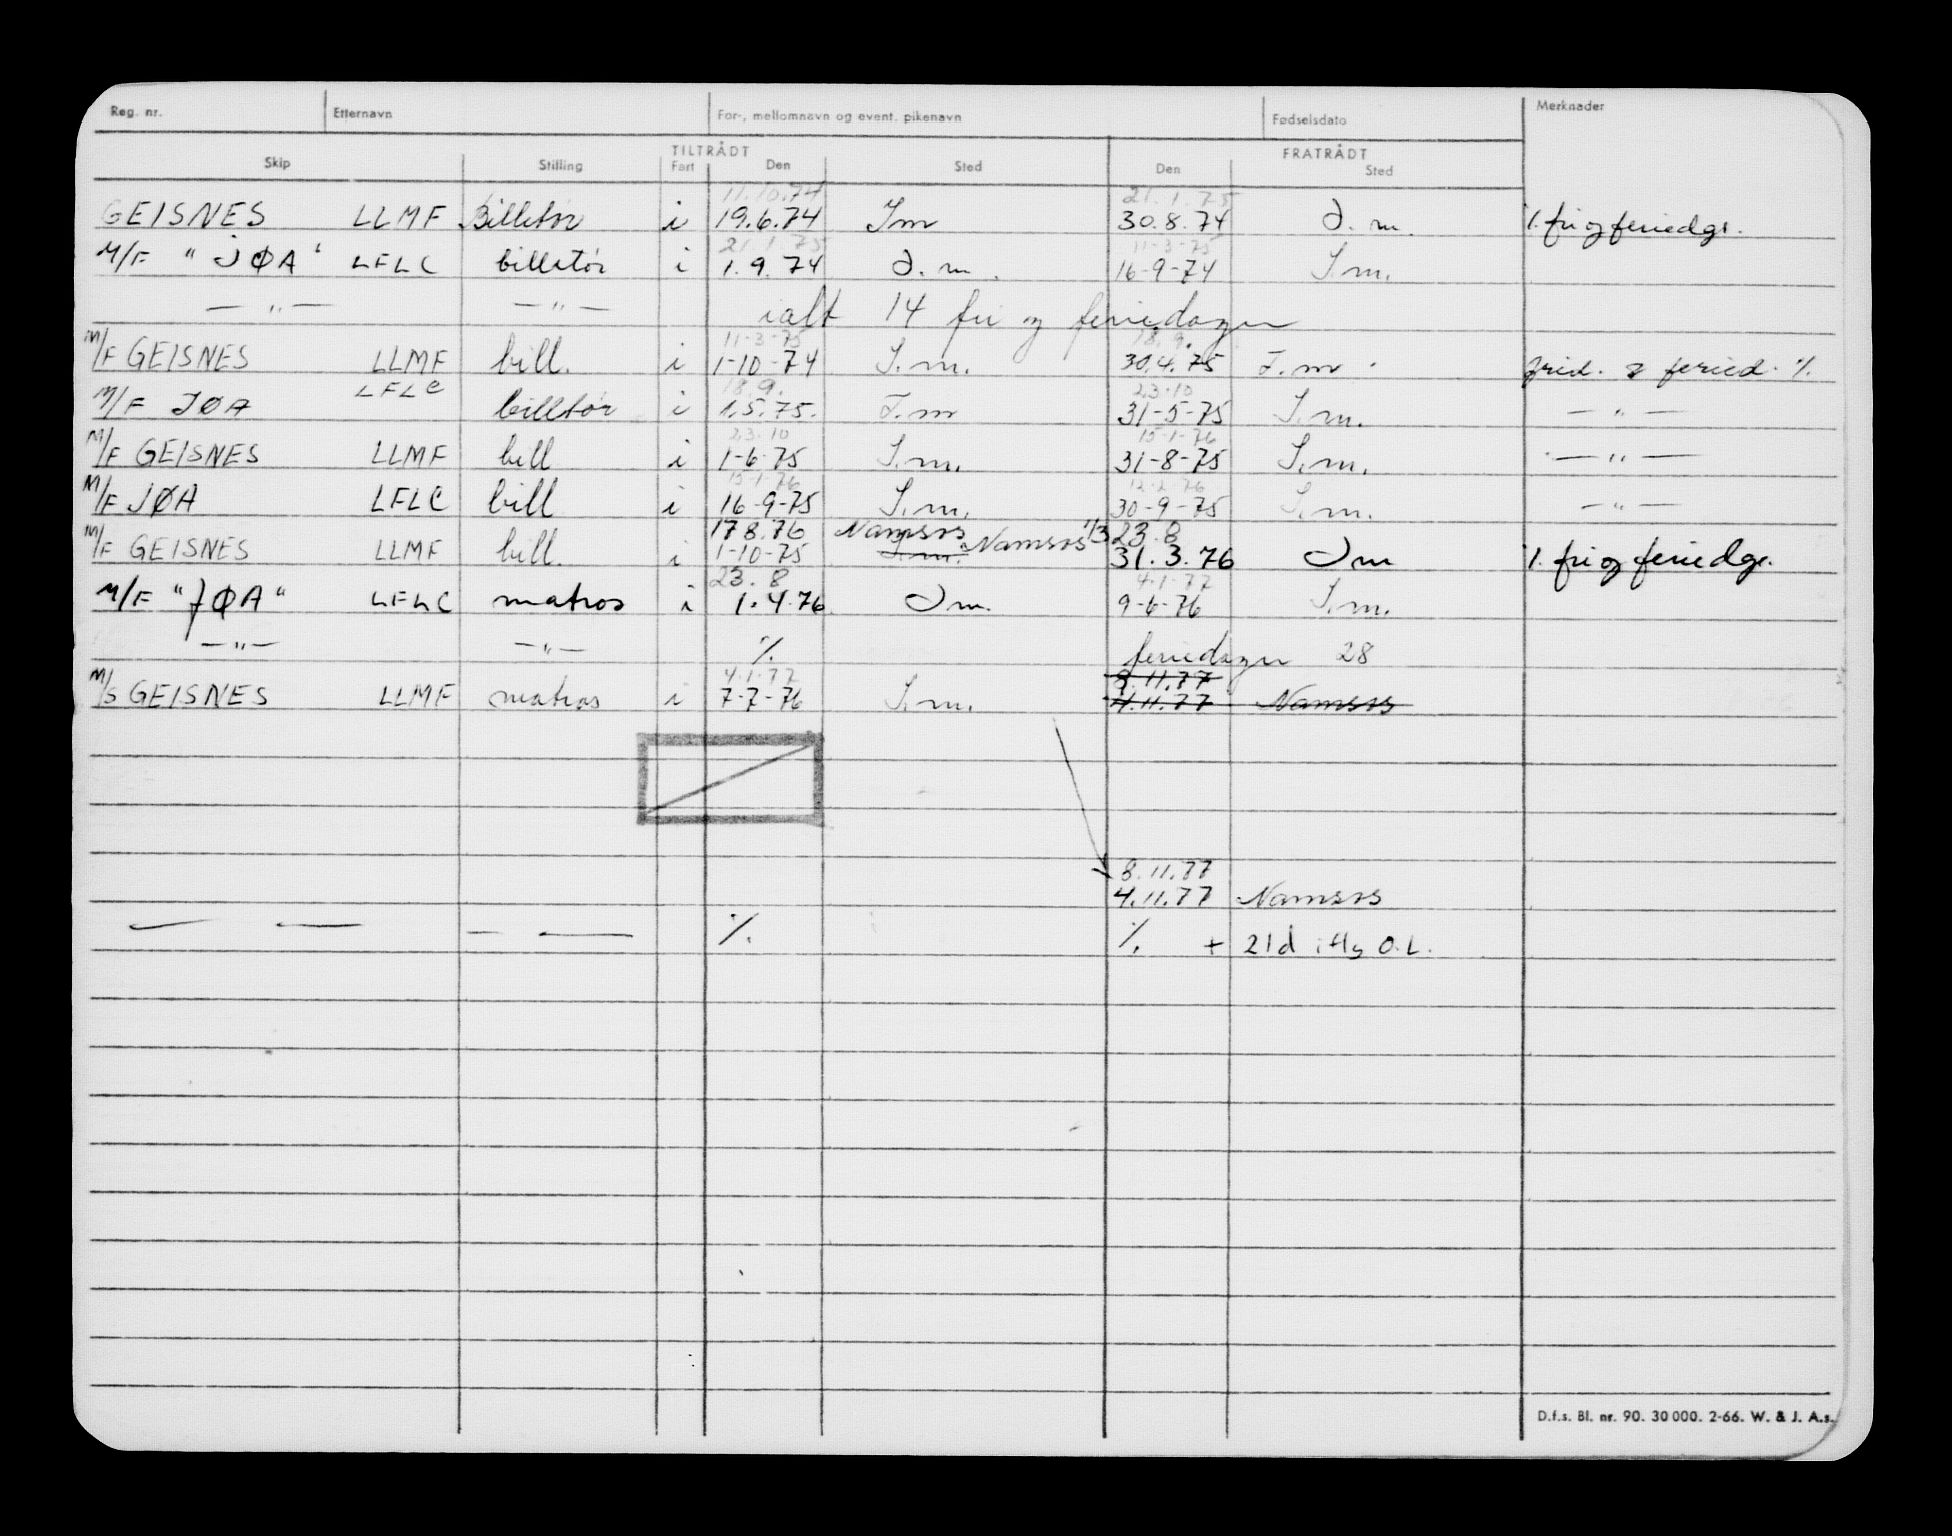 Reg. nr. Etternavn For-, mellomnavn og event. pikenavn Fødselsdato Merknader
TILTRÅDT FRATRÅDT
Skip Stilling Fart Den Sted Den Sted
11.10.74 21.1.75
GEISNES LLMF Billetør i 19.6.74 I m 30.8.74 I. m. % fri og feriedgr.
21.1.75 11-3-75
M/F "JØA" LFLC billetør i 1.9.74 I. m. 16-9-74 I.m.
— " — — " — ialt 14 fri og feriedager
11-3-75 18.9.
M/F GEISNES LLMF bill. i 1-10-74 I.m. 30.4.75 I.m. frid. og feried. %
18.9. 23.10
M/F JØA LFLC billetør i 1.5.75. I.m 31-5-75 I.m. — " —
23.10 15-1-76
M/F GEISNES LLMF bill i 1-6-75 I.m. 31-8-75 I.m. — " —
15-1-76 12-2-76
M/F JØA LFLC bill i 16-9-75 I.m. 30-9-75 I.m. — " —
17.8.76 Namsos 23.8
M/F GEISNES LLMF bill. i 1-10-75 I.m. Namsos 1/3 31.3.76 I m % fri og feriedgr.
23.8 4.1.77
M/F "JØA" LFLC matros i 1.4.76 I m. 9-6-76 I.m.
— " — — " — % feriedager 28
4.1.77 8.11.77
M/S GEISNES LLMF matros i 7-7-76 I.m. 4.11.77 Namsos
8.11.77
4.11.77 Namsos
— — — — % % + 21d iflg O.L.
D.f.s. Bl. nr. 90. 30 000. 2-66. W. & J. A.s.